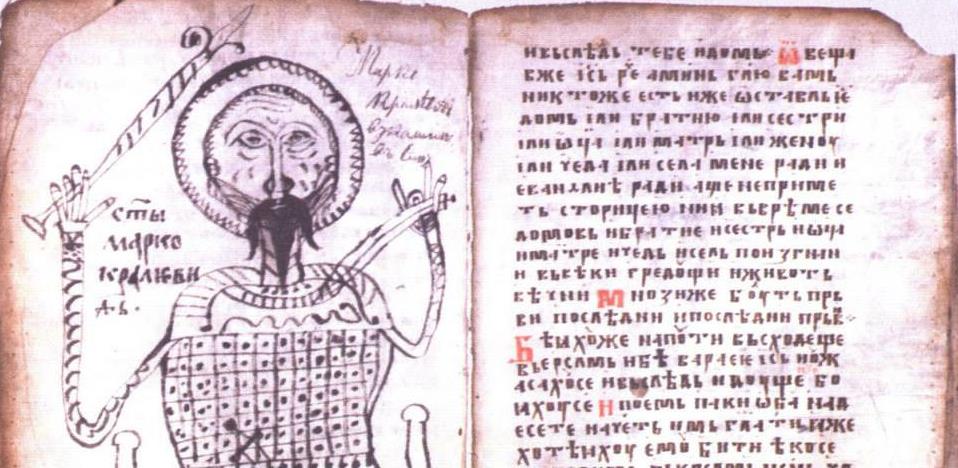 Марко
ст҃ы
марко
кралюви
А·в·
ивьслѣдь тебе идомь· Ѿвеща
вже іс҃ь ре аминь глю вамь
никтоже есть иже ѡставль іе
домь или братию или сестри
или ѡца или матрь или женоу
или чеда или села мене ради и
еванглиѣ ради аще неприме
ть сторицею нин вьврѣме се
домовь ибратие исестрь иѡца
иматре ичедь исель поизгнан
и вьвѣки гредощи иживоть
вѣчни Мнозиже боуть прь
ви послѣдни ипослѣдни прьв
Бѣыхоже напоти вьсходеще
вьерсамь ибѣ вараеіе ісь иѹж
асахосе ивьслѣдь идоуще бо
ихоусе и поемь паки ѡба над
есете начеть имь глати ꙗже
хотѣхоу емо бити ѣкосе